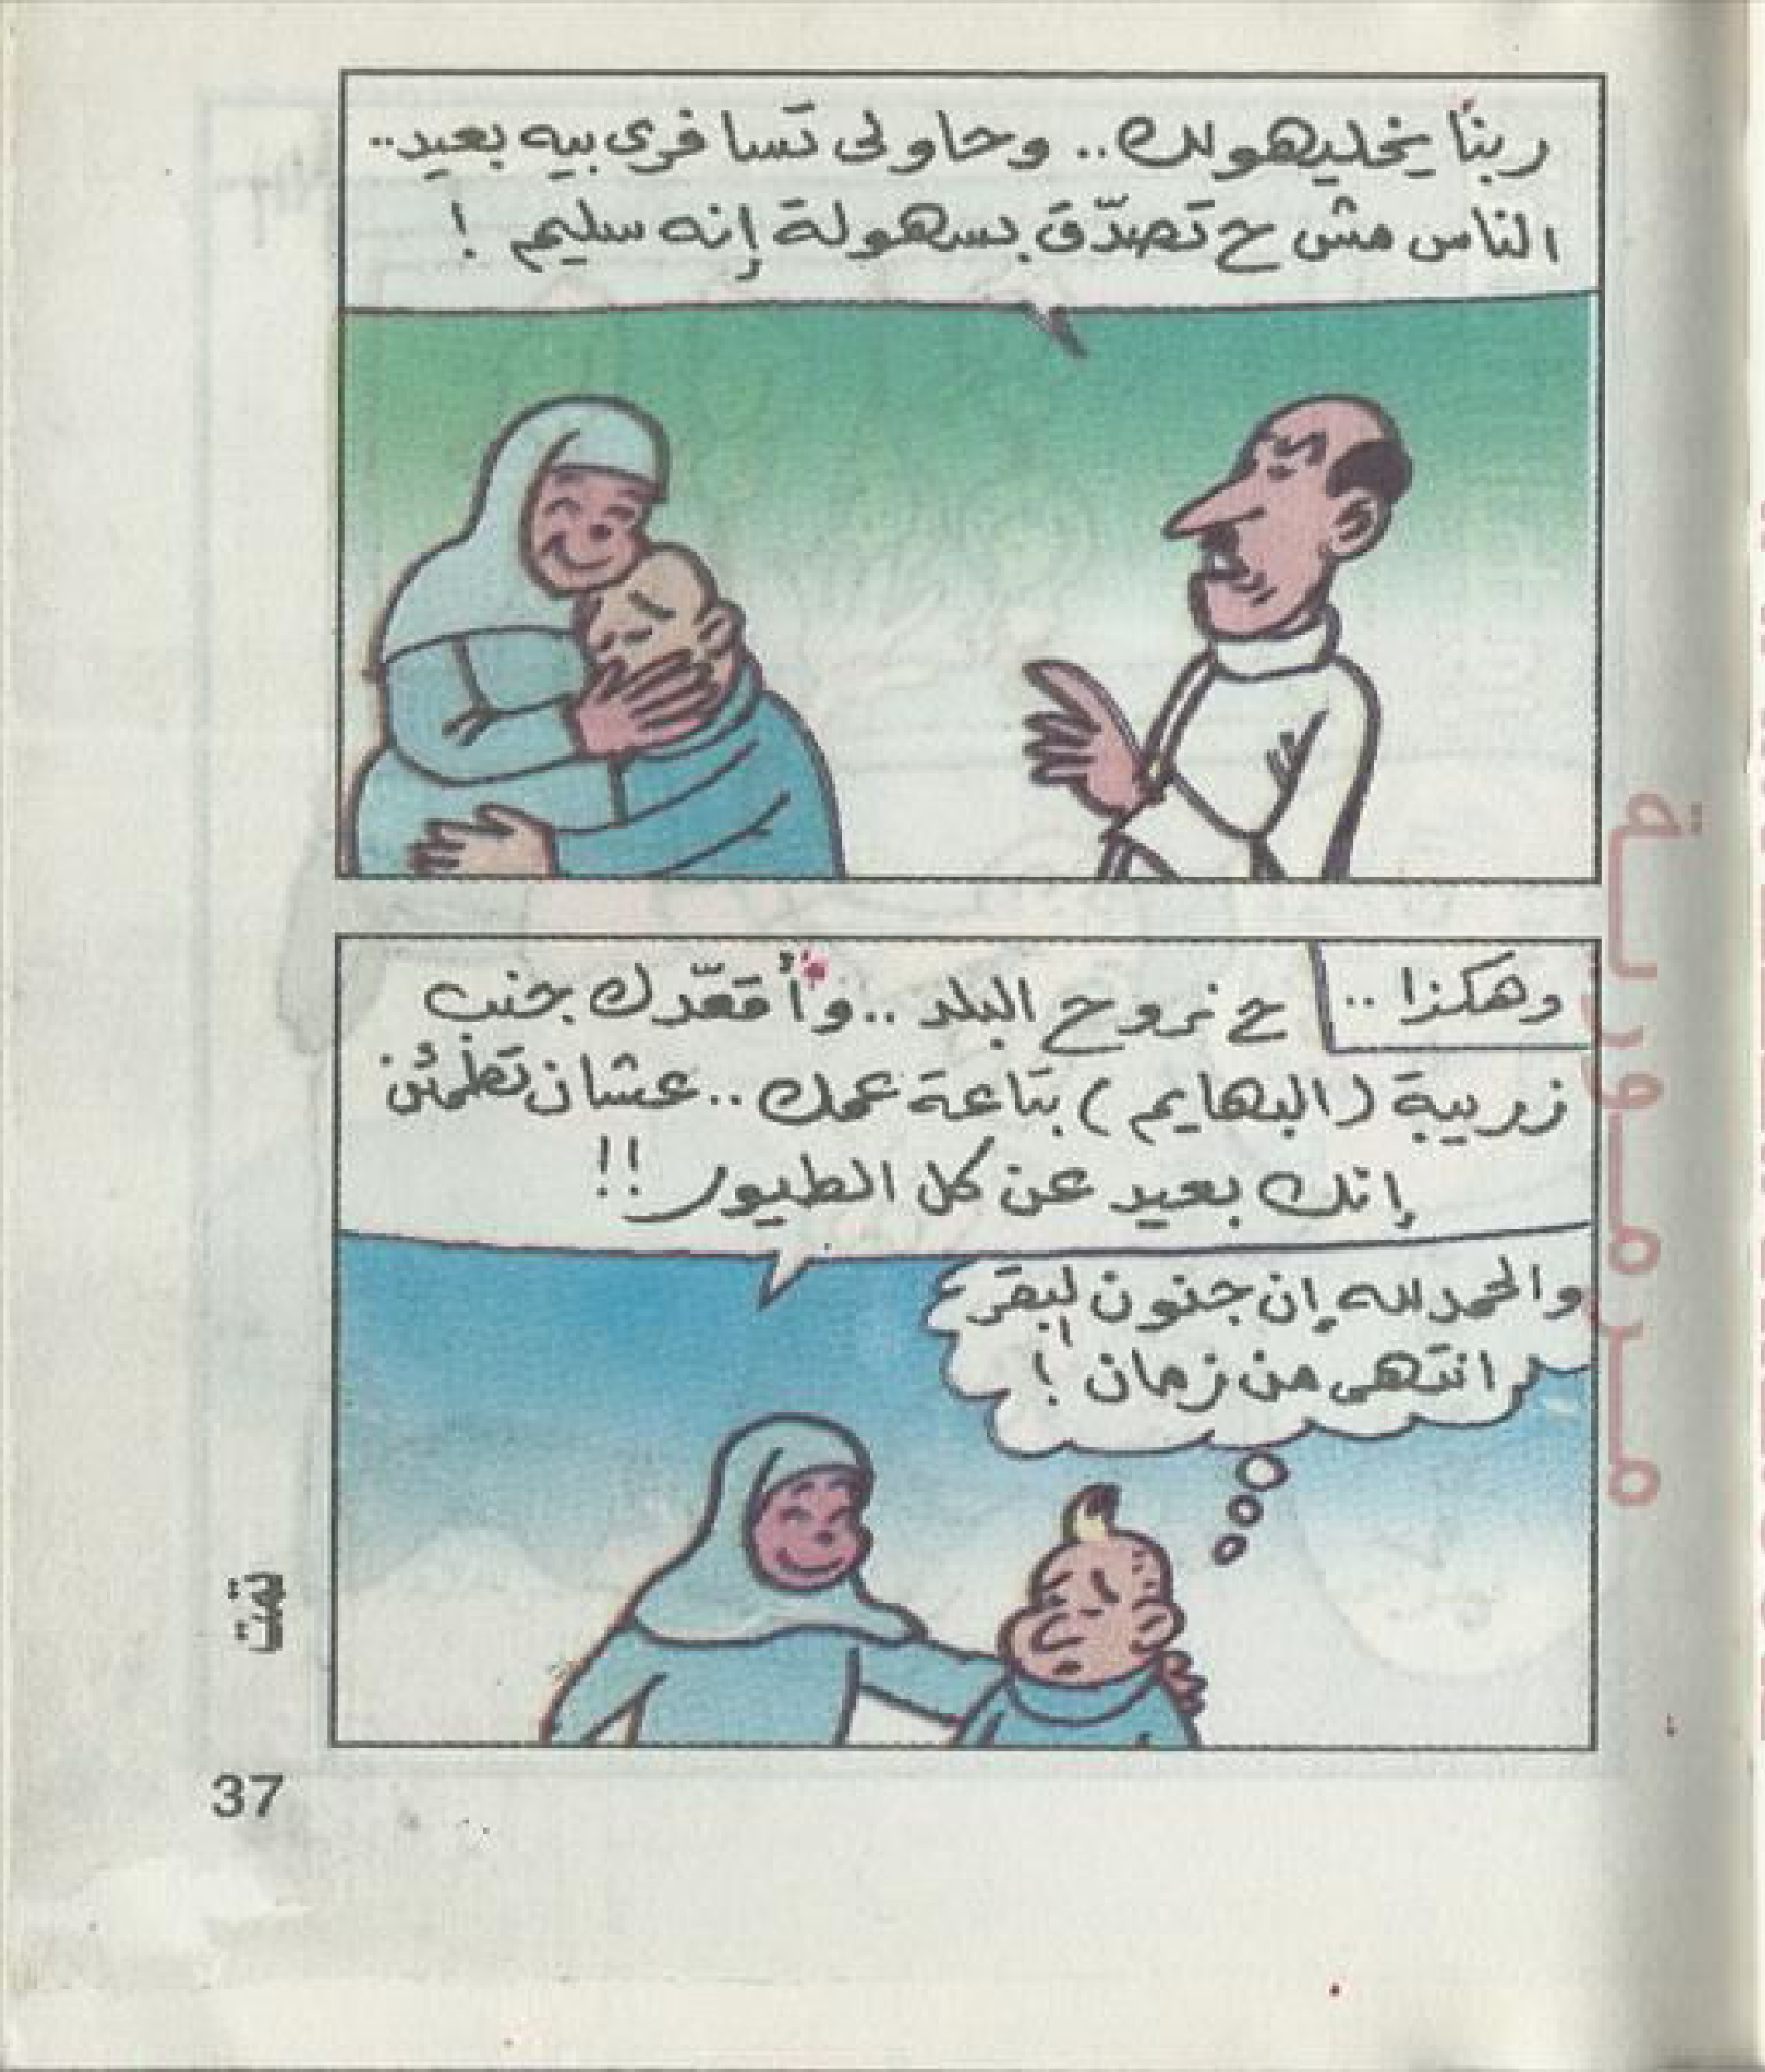 ربنا يخليهولك.. وحاولى تسافرى بيه بعيد..
الناس مش ح تصدّق بسهولة إنه سليم !
وهكذا ..
ح نروح البلد .. وأقعّدك جنب
زريبة (البهايم) بتاعة عمك.. عشان تطمئن
إنك بعيد عن كل الطيور !!
والحمد لله إن جنون البقر
انتهى من زمان !
تمت
37